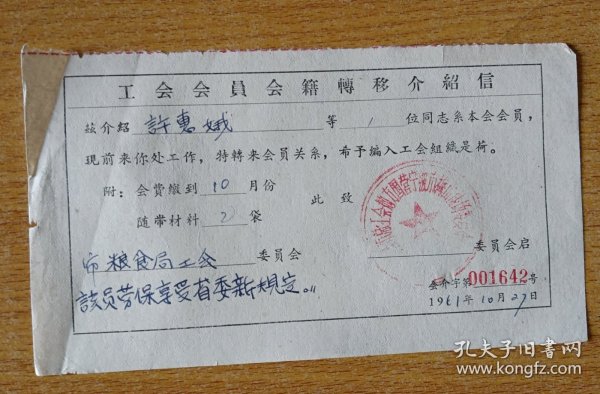 工会会員会籍轉移介紹信
茲介紹 許惠娥 等 1 位同志系本会会員，
現前来你处工作，特轉来会员关系，希予編入工会組織是荷。
附：会費繳到 10 月份
此致
随带材料 2 袋
市粮食局工会 委员会
委员会启
会介字第001642号
該员劳保享受省委新规定。
1961年10月27日
孔夫子旧書网
www.kongfz.com